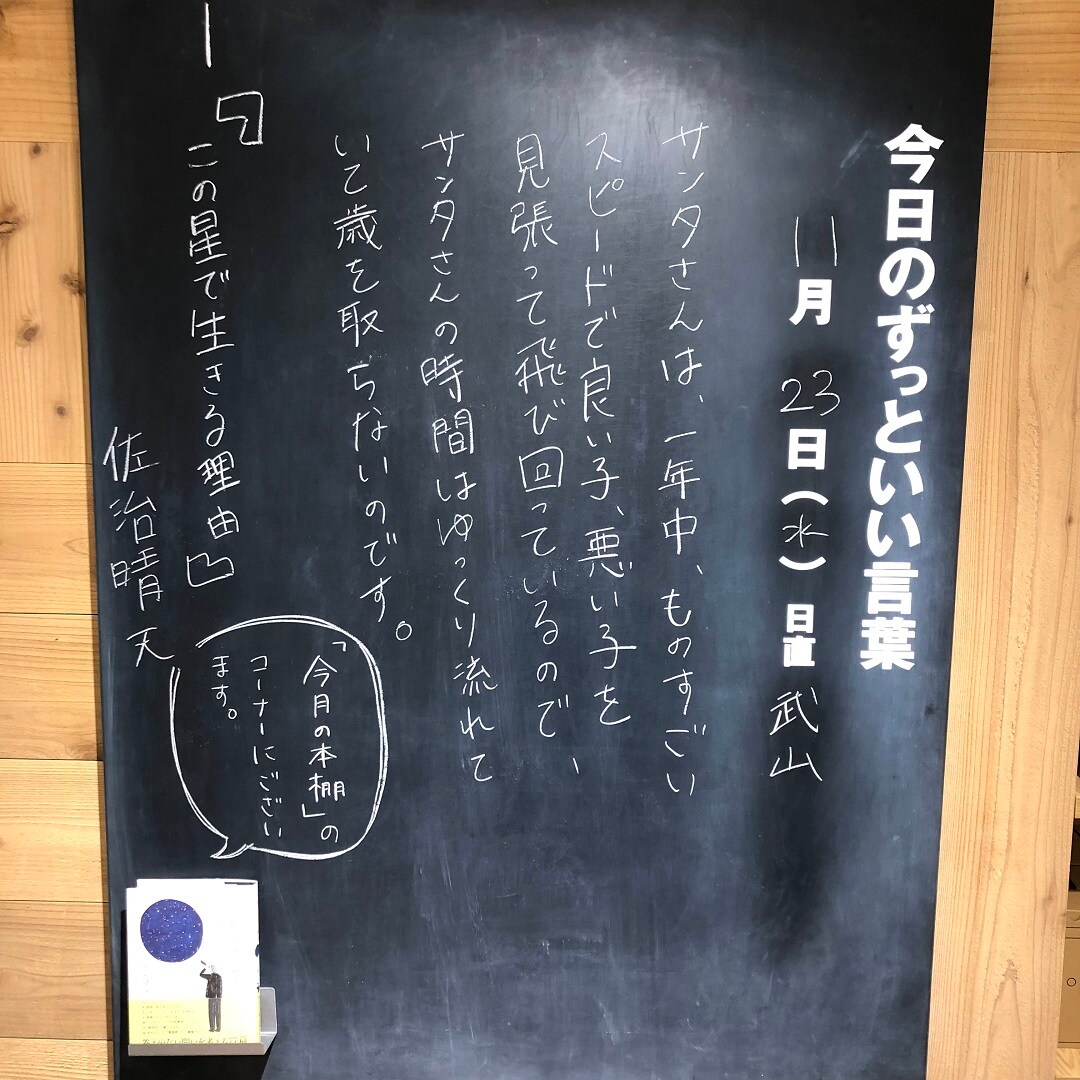 今日のずっといい言葉
11月23日(水) 日直 武山
サンタさんは、一年中、ものすごい
スピードで良い子、悪い子を
見張って飛び回っているので、
サンタさんの時間はゆっくり流れて
いて歳を取らないのです。
―『この星で生きる理由』
佐治晴天
「今月の本棚」の
コーナーにござい
ます。